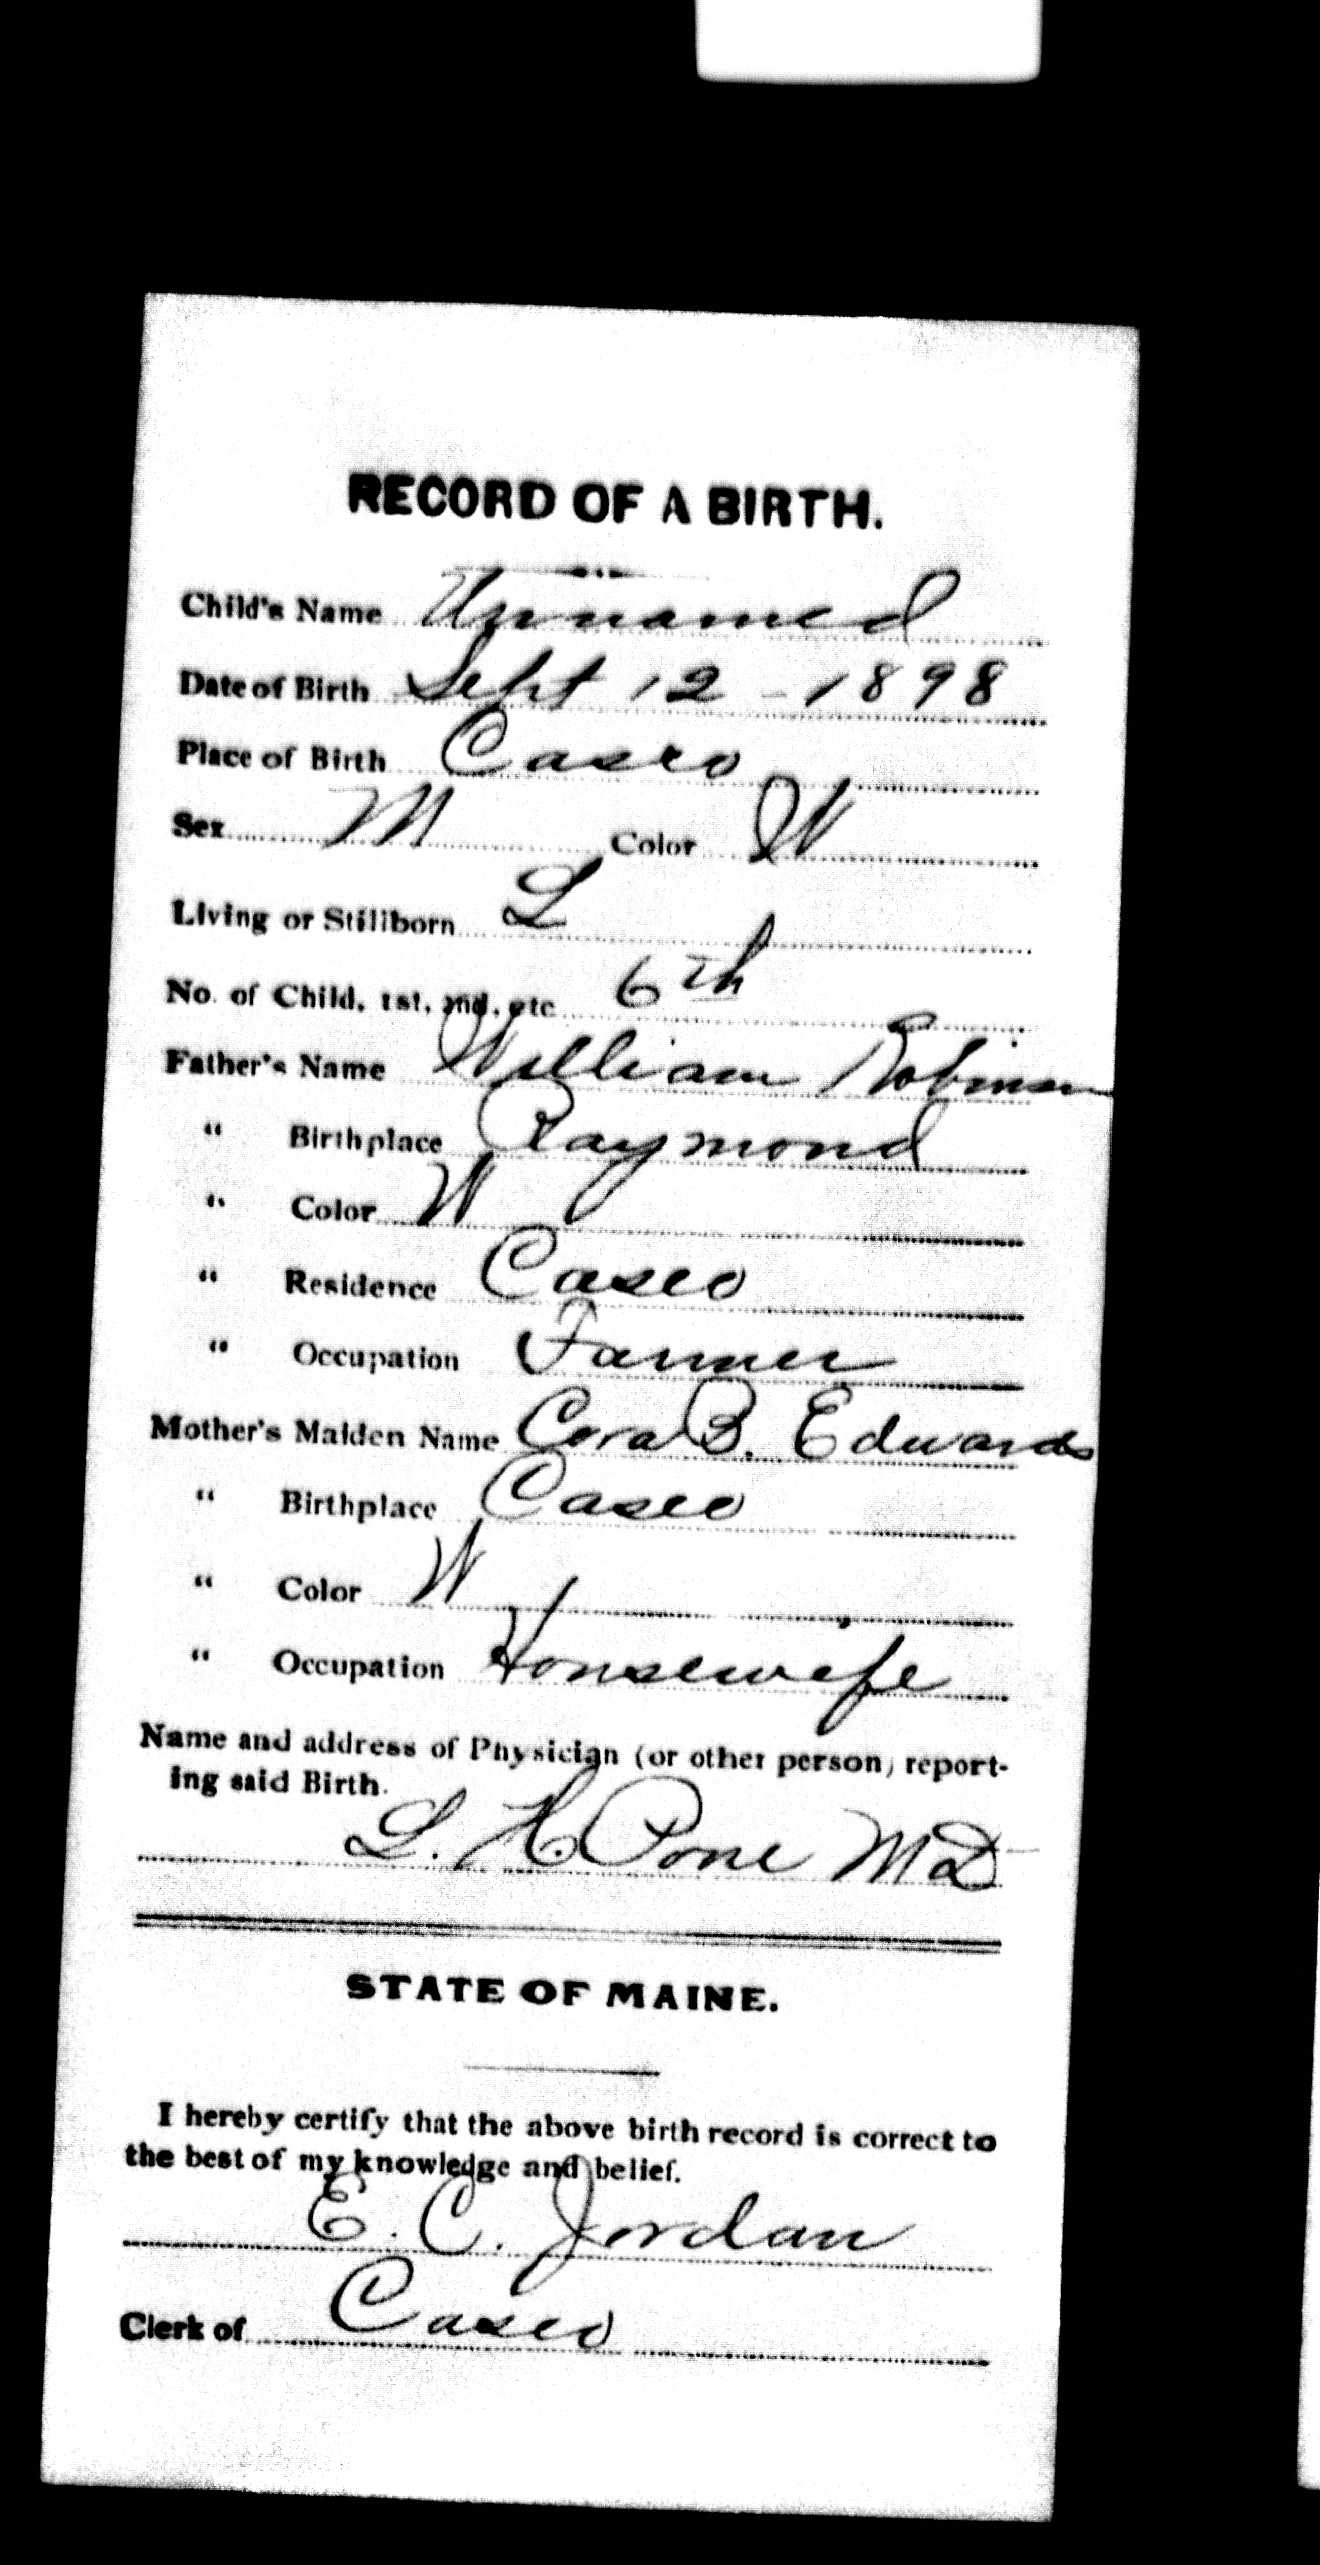 RECORD OF A BIRTH.
Child's Name Unnamed
Date of Birth Sept 12 - 1898
Place of Birth Casco
Sex M Color W
Living or Stillborn L
No. of Child, 1st, 2nd, etc 6th
Father's Name William Robinson
" Birthplace Raymond
" Color W
" Residence Casco
" Occupation Farmer
Mother's Maiden Name Cora B. Edwards
" Birthplace Casco
" Color W
" Occupation Housewife
Name and address of Physician (or other person) report-
ing said Birth.
L. H. Poore MD
STATE OF MAINE.
I hereby certify that the above birth record is correct to
the best of my knowledge and belief.
E. C. Jordan
Clerk of Casco